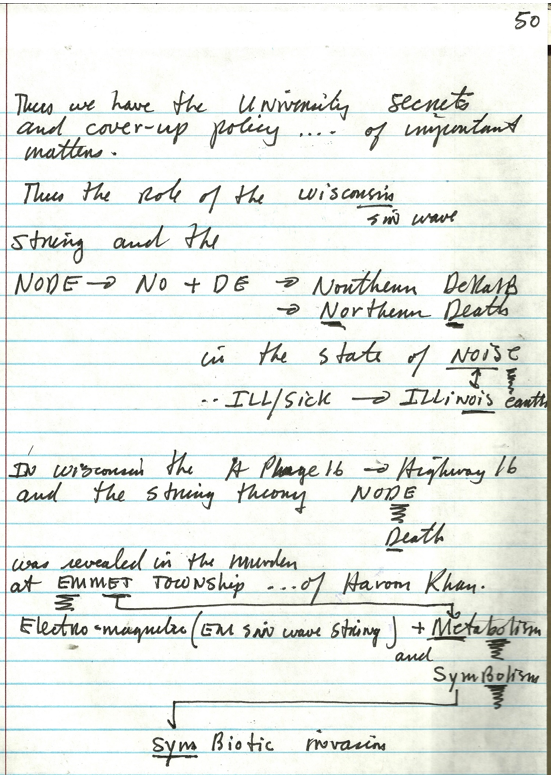 50
Thus we have the University secrets
and cover-up policy .... of important
matters.
Thus the role of the wisconsin
sin wave
string and the
NODE → NO + DE → Northern DeKalB
→ Northern Death
in the state of NOISE
.. ILL/Sick → ILLinois earth
In wisconsin the A Phage 16 → Highway 16
and the string theory NODE
Death
was revealed in the murder
at EMMET TOWNSHIP ... of Harom Khan.
Electro-magnetic (EM sin wave string) + Metabolism
and
SymBolism
Sym Biotic invasion